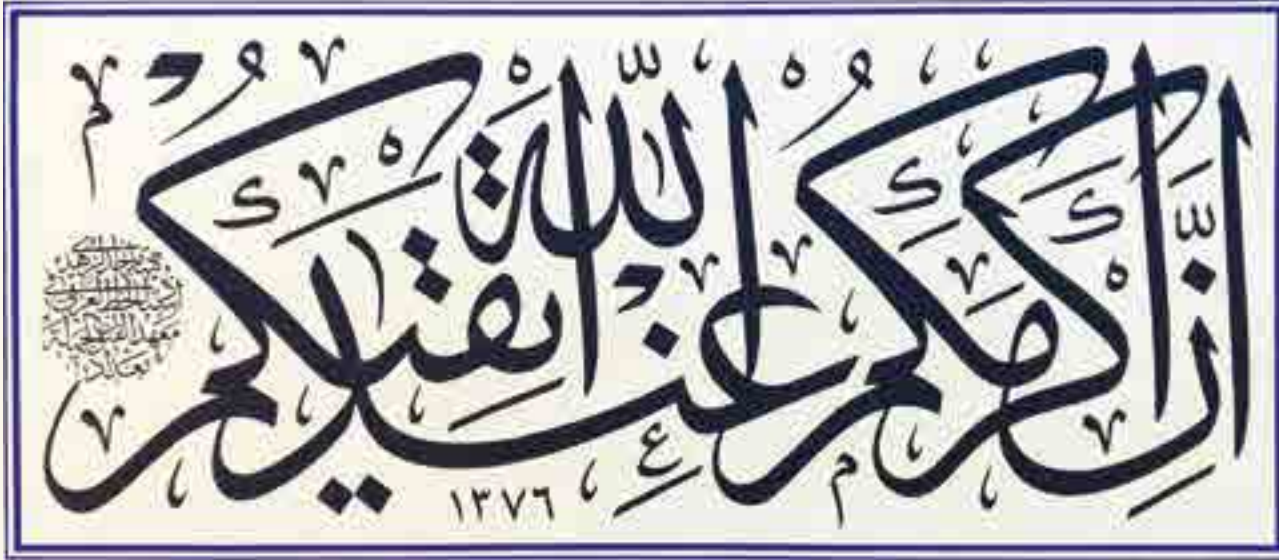 إِنَّ أَكْرَمَكُمْ عِنْدَ اللَّهِ أَتْقٰيكُمْ
١٣٧٦